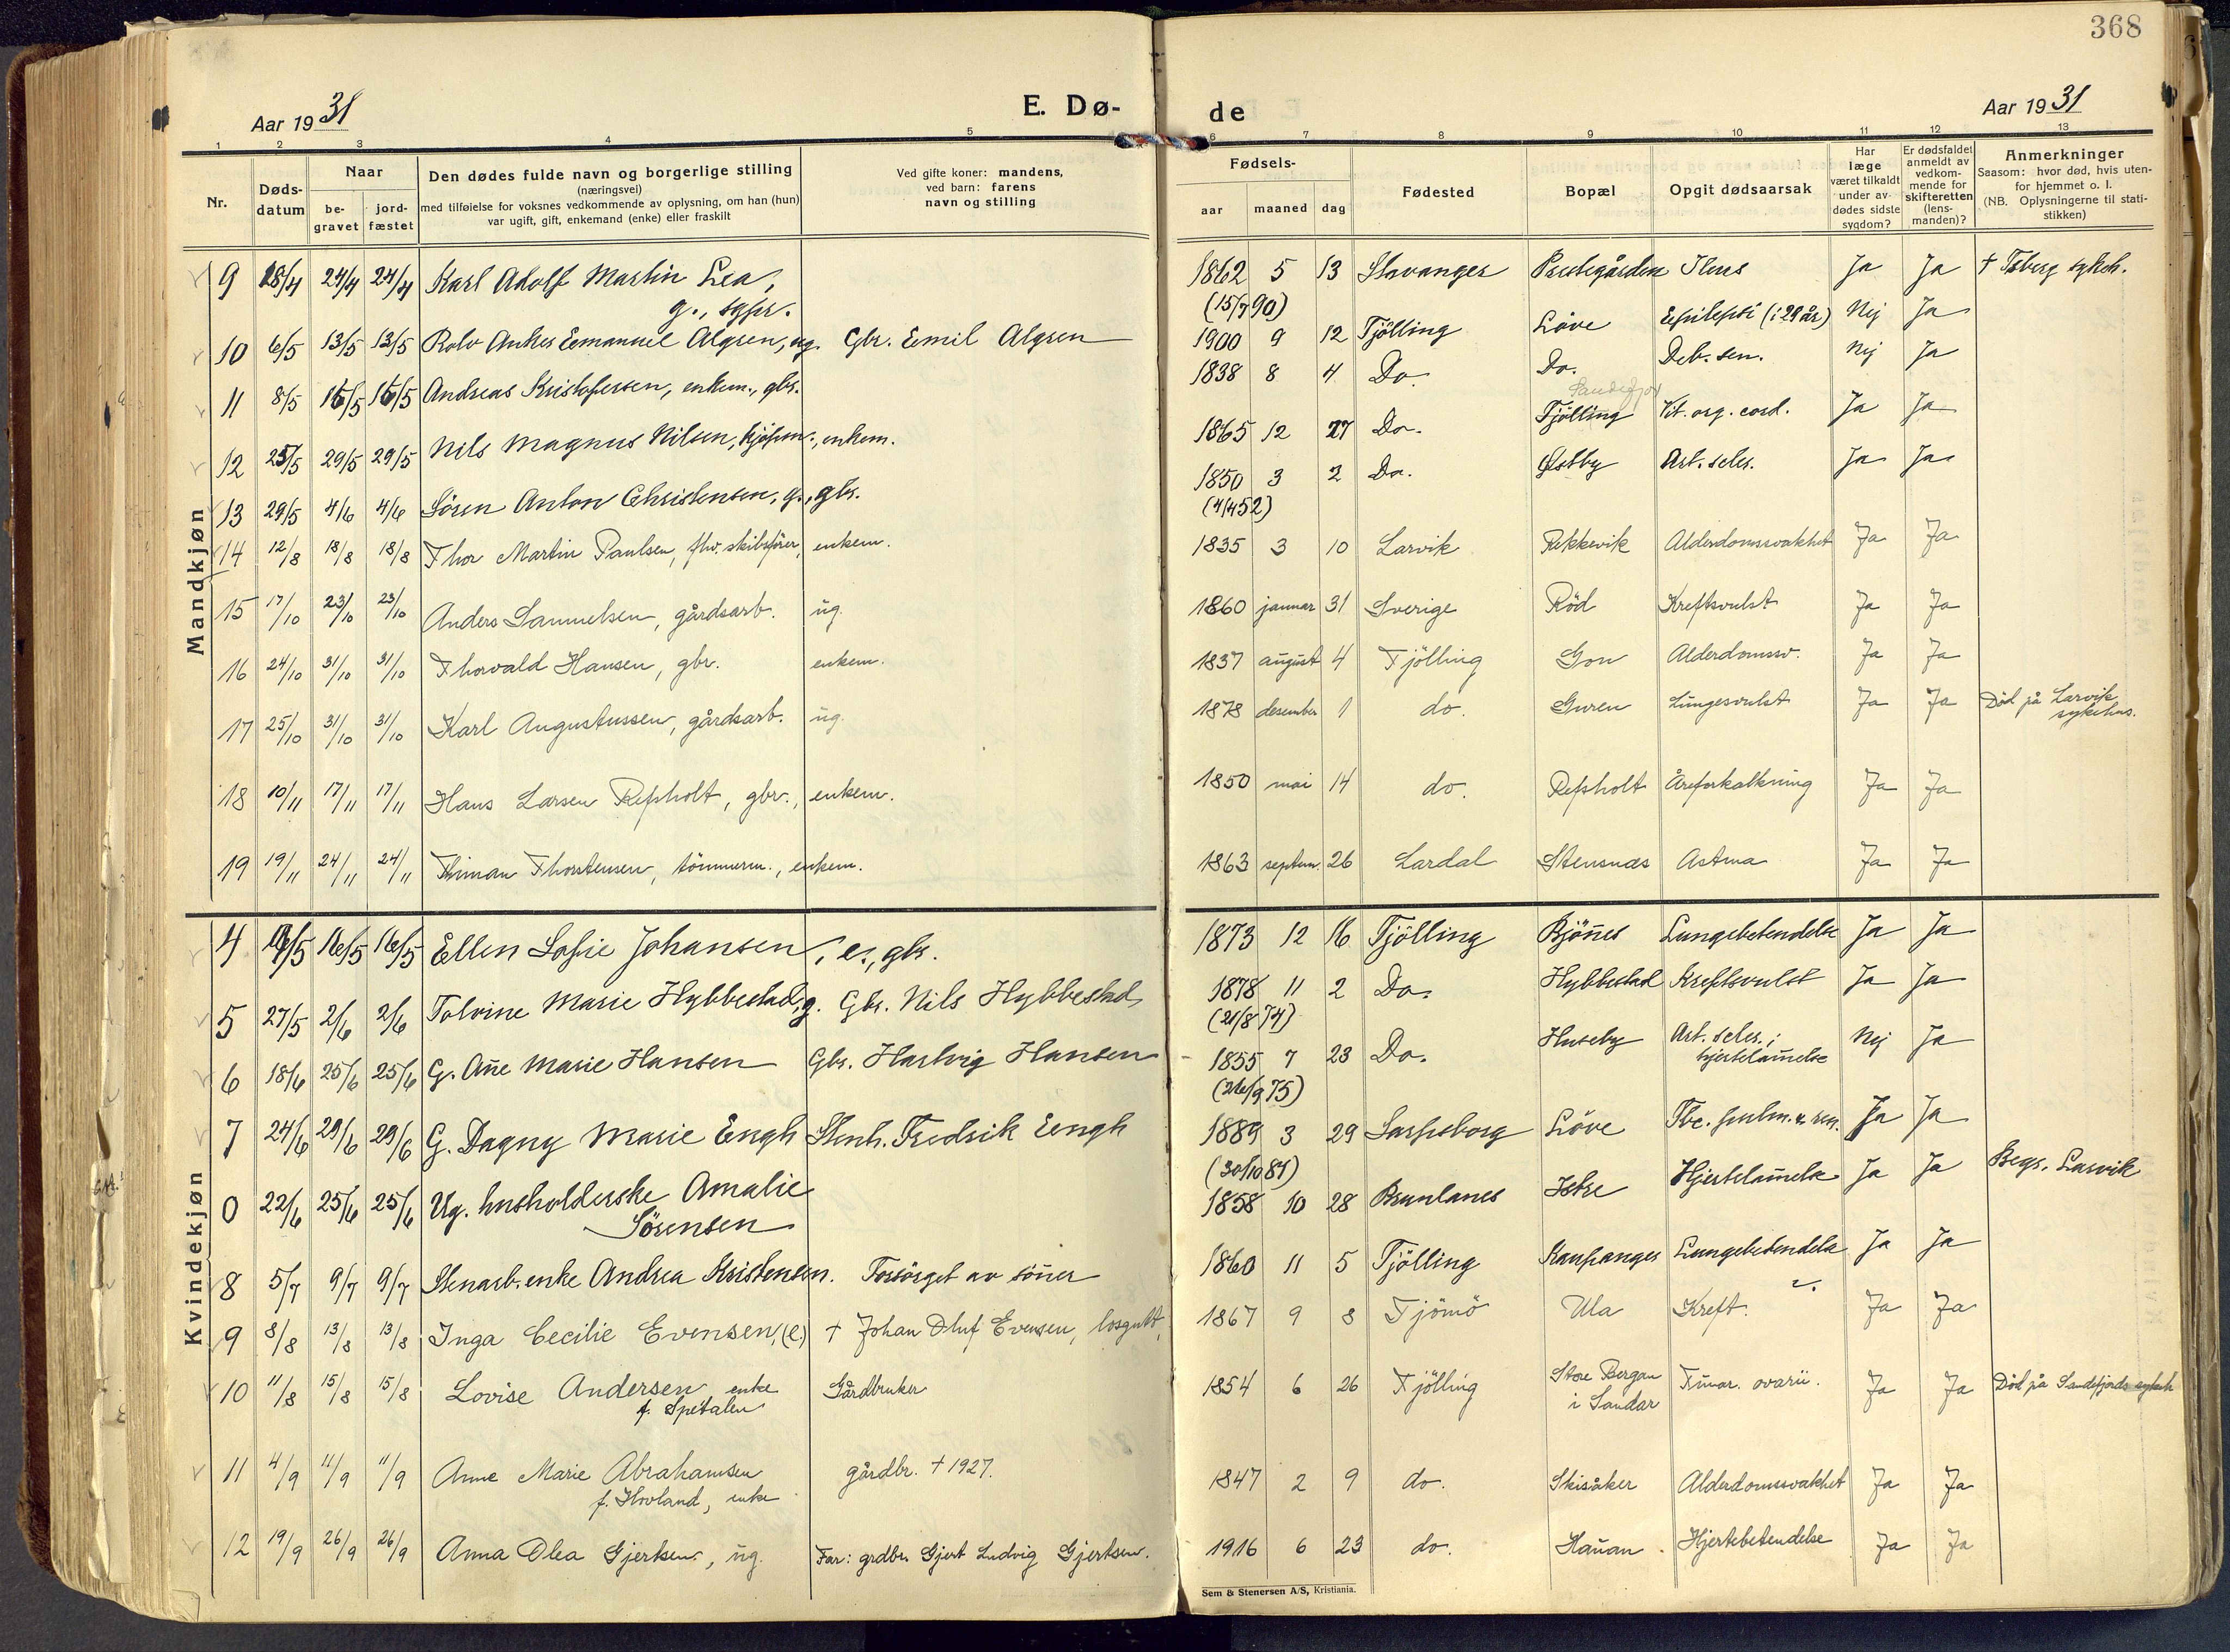 368
Aar 1931
E. Dø-
de
Aar 1931
1 2 3 4 5 6 7 8 9 10 11 12 13
Nr.
Døds-
datum
Naar
be-
gravet
jord-
fæstet
Den dødes fulde navn og borgerlige stilling
(næringsvei)
med tilføielse for voksnes vedkommende av oplysning, om han (hun)
var ugift, gift, enkemand (enke) eller fraskilt
Ved gifte koner: mandens,
ved barn: farens
navn og stilling
Fødsels-
aar maaned dag
Fødested
Bopæl
Opgit dødsaarsak
Har
læge
været tilkaldt
under av-
dødes sidste
sygdom?
Er dødsfaldet
anmeldt av
vedkom-
mende for
skifteretten
(lens-
manden)?
Anmerkninger
Saasom: hvor død, hvis uten-
for hjemmet o. l.
(NB. Oplysningerne til stati-
stikken)
Mandkjøn
9 18/4 24/4 24/4 Karl Adolf Martin Lea, 1862 5 13 Stavanger Prestegården Ileus Ja Ja † Tsberg sykeh.
g., sgpr. (15/7 90)
10 6/5 13/5 13/5 Rolv Anker Emanuel Algren, ug. Gbr. Emil Algren 1900 9 12 Tjölling Löve Epilepsi (i 29 år) Nej Ja
11 8/5 15/5 15/5 Andreas Kristofersen, enkem., gbr. 1838 8 4 Do. Do. Deb. sen. Nej Ja
Sandefjord
12 25/5 29/5 29/5 Nils Magnus Nilsen, kjøpm., enkem. 1865 12 27 Do. Tjölling Vit. org. cord. Ja Ja
13 29/5 4/6 4/6 Sören Anton Christensen, g., gbr. 1850 3 2 Do. Østby Art. scler. Ja Ja
14 12/8 18/8 18/8 Thor Martin Paulsen, fhv. skibsfører, enkem. 1835 3 10 Larvik Rekkevik Alderdomssvakhet Ja Ja
15 17/10 23/10 23/10 Anders Samuelsen, gårdsarb. ug. 1860 januar 31 Sverige Röd Kreftsvulst Ja Ja
16 24/10 31/10 31/10 Thorvald Hansen, gbr. enkem. 1837 august 4 Tjölling Gon Alderdomssv. Ja Ja
17 25/10 31/10 31/10 Karl Augustussen, gårdsarb. ug. 1878 desember 1 do. Guren Lungesvulst Ja Ja Död på Larvik
sykehus.
18 10/11 17/11 17/11 Hans Larsen Refsholt, gbr., enkem. 1850 mai 14 do. Refsholt Åreforkalkning Ja Ja
19 19/11 24/11 24/11 Thorstensen, tömmerm., enkem. 1863 septem. 26 Lardal Stensnæs Astma Ja Ja
Kvindekjøn
4 16/5 16/5 Ellen Sofie Johansen, e., gbr. 1873 12 16 Tjölling Bjönnes Lungebetendelse Ja Ja
5 27/5 2/6 2/6 Tolvine Marie Hybbestad, g. Gbr. Nils Hybbestad 1878 11 2 Do. Hybbestad Kreftsvulst Ja Ja
6 18/6 25/6 25/6 G. Anne Marie Hansen Gbr. Hartvig Hansen 1855 7 23 Do. Huseby Art. scler.; Nej Ja
hjertelammelse
(26/9 75)
7 24/6 29/6 29/6 G. Dagny Marie Engh Stenh. Fredrik Engh 1889 3 29 Sarpsborg Löve Tbc. pulm. & ren. Ja Ja
0 22/6 25/6 25/6 Ug. husholderske Amalie 1858 10 28 Brunlanes Istre Hjertelammelse Ja Ja Begr. Larvik
Sörensen
8 5/7 9/7 9/7 Stenarb. enke Andrea Kristensen. Forsörget av sönner 1860 11 5 Tjölling Kaupanger Lungebetendelse Ja Ja
9 8/8 13/8 13/8 Inga Cecilie Evensen, (e.) † Johan Oluf Evensen, losgutt, 1867 9 8 Tjömö Ula Kreft. Ja Ja
10 11/8 15/8 15/8 Lovise Andersen, enke Gårdbruker 1854 6 26 Tjölling Store Bergan ovarii. Ja Ja Död på Sandefjords sykeh
f. Spetalen i Sandar
11 4/9 11/9 11/9 Anne Marie Abrahamsen gårdbr. † 1927. 1847 2 9 do. Skisåker Alderdomssvakhet Ja Ja
f. Hovland, enke
12 19/9 26/9 26/9 Anna Olea Gjertsen, ug. Far: grdbr. Gjert Ludvig Gjertsen. 1916 6 23 do. Haugan Hjertebetendelse Ja Ja
Sem & Stenersen A/S, Kristiania.